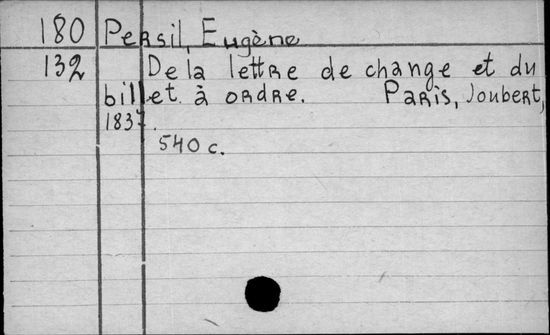 180 Persil, Eugène
132 De la lettre de change et du
billet à ordre. Paris, Joubert,
1837.
540 c.